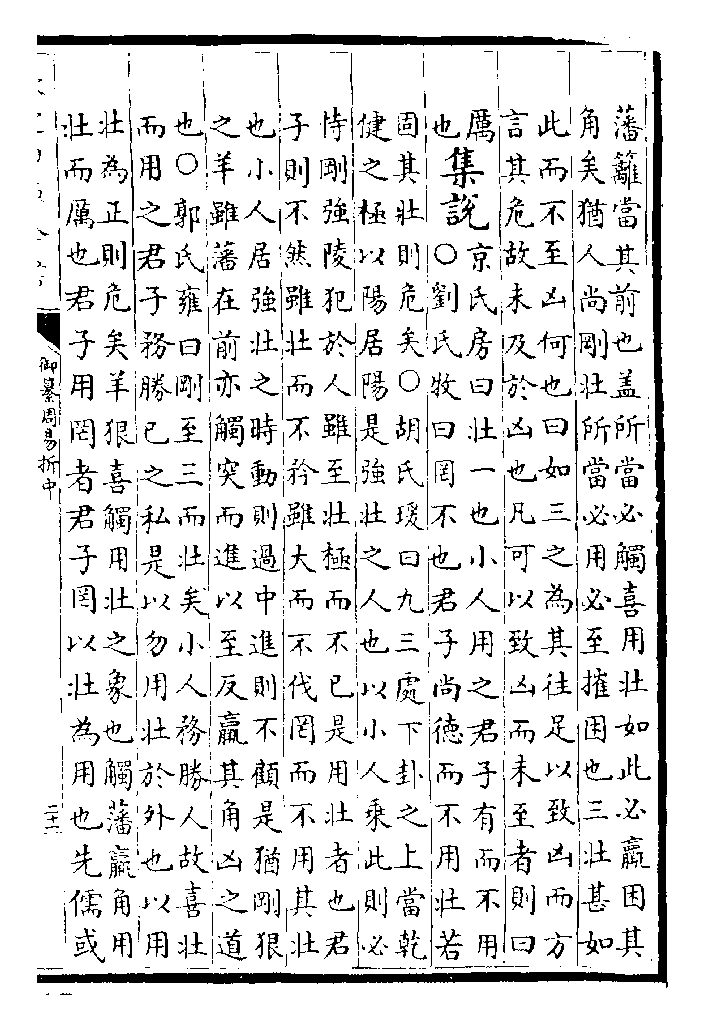 藩籬當其前也盖所當必觸喜用壯如此必羸困其
角矣猶人尚剛壯所當必用必至摧困也三壯甚如
此而不至凶何也曰如三之為其往足以致凶而方
言其危故未及於凶也凡可以致凶而未至者則曰
厲
也
集說
○京氏房曰壯一也小人用之君子有而不用
○劉氏牧曰罔不也君子尚德而不用壯若
固其壯則危矣○胡氏瑗曰九三處下卦之上當乾
健之極以陽居陽是強壯之人也以小人乘此則必
恃剛強陵犯於人雖至壯極而不已是用壯者也君
子則不然雖壯而不矜雖大而不伐罔而不用其壯
也小人居強壯之時動則過中進則不顧是猶剛狠
之羊雖藩在前亦觸突而進以至反羸其角凶之道
也○郭氏雍曰剛至三而壯矣小人務勝人故喜壯
而用之君子務勝己之私是以勿用壯於外也以用
壯為正則危矣羊狠喜觸用壯之象也觸藩羸角用
壯而厲也君子用罔者君子罔以壯為用也先儒或
御纂周易折中